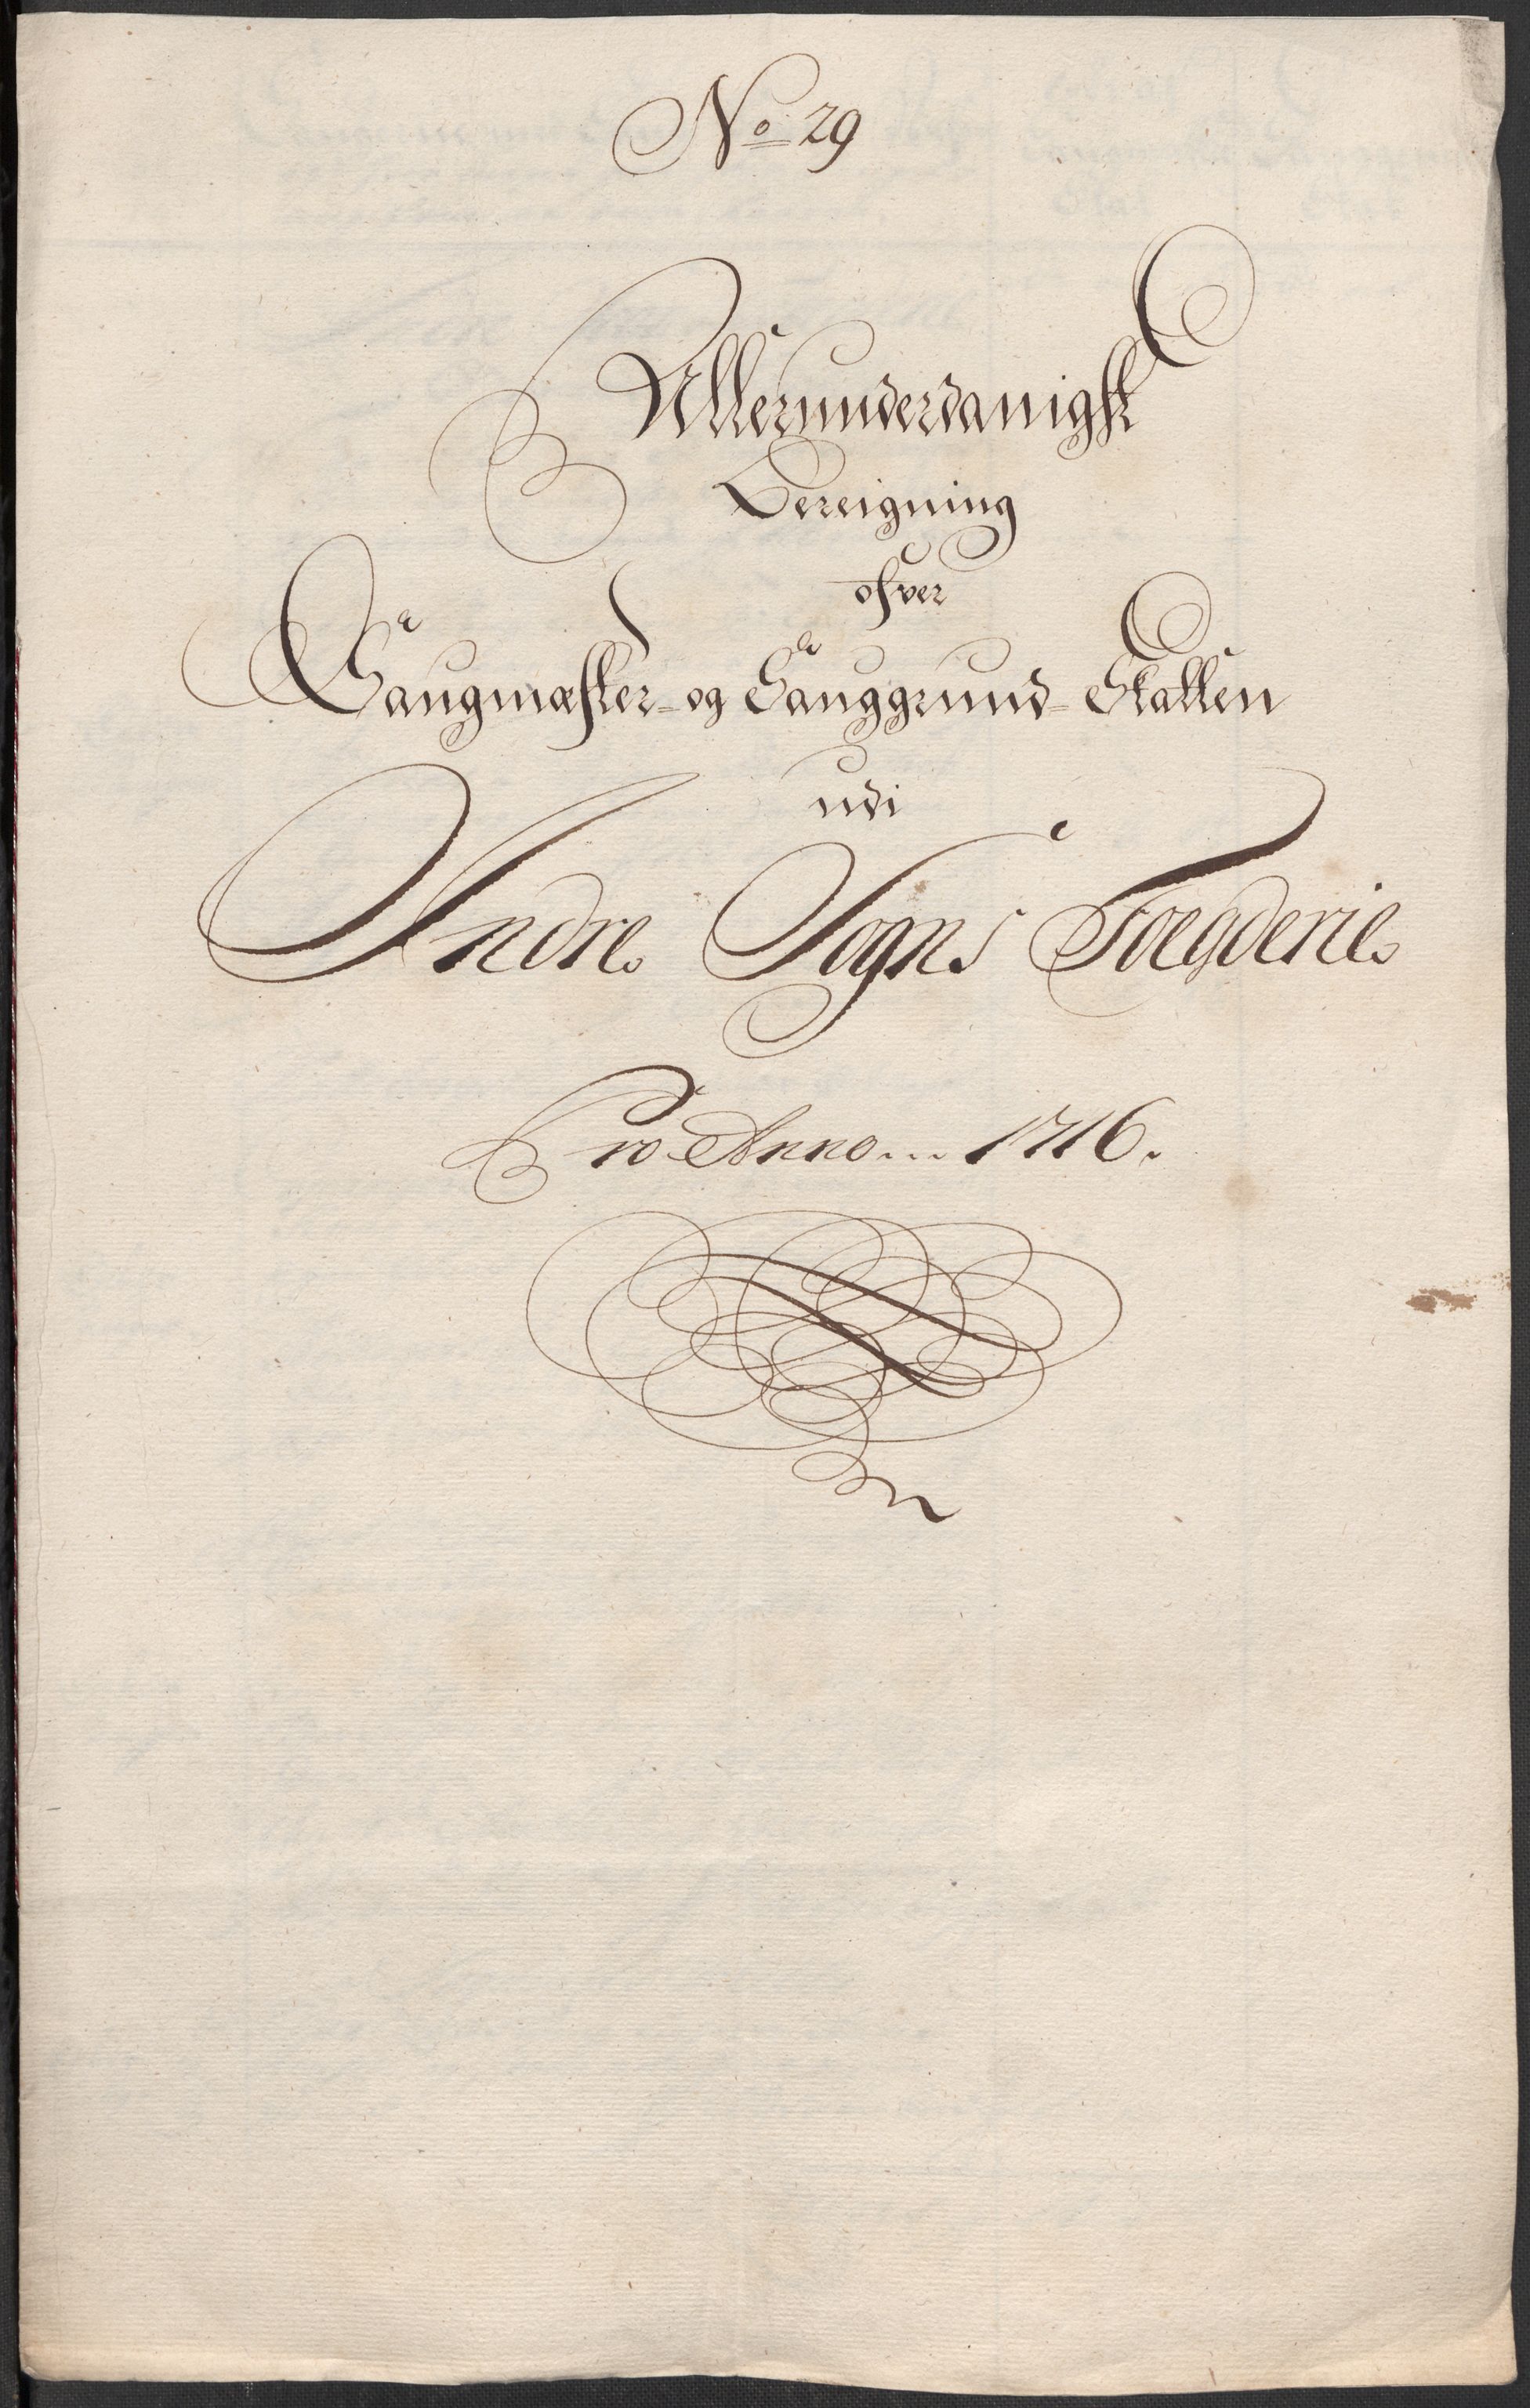 No 29
Allerunderdanigst
Bereigning
ofver
Saugmæster- og Sauggrund- Skatten
udi
Indre Sogns Foegderie
Pro Anno... 1716.